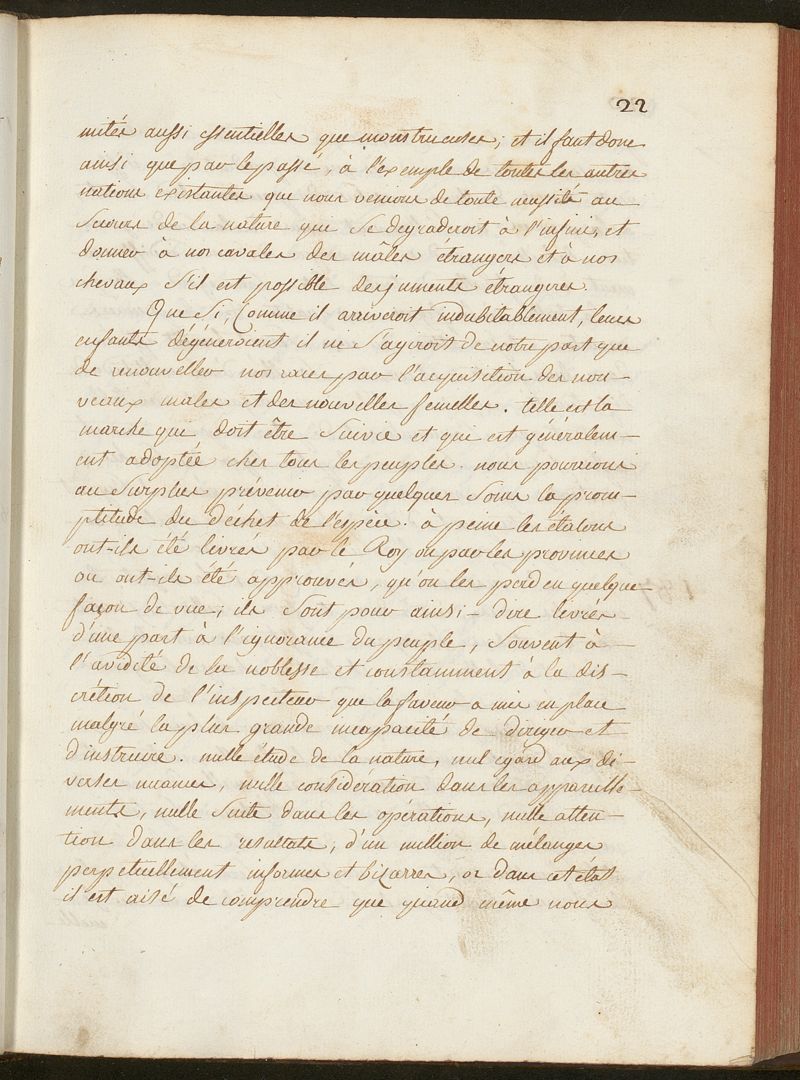 22
mités aussi essentielles que monstrueuses; et il faut donc
ainsi que par le passé, à l'exemple de toutes les autres
nations existantes que nous venions de toute necessité au
Secours de la nature qui se degraderoit à l'infini, et
donner à nos cavales des mâles étrangers et à nos
chevaux s'il est possible des juments étrangeres.
Que Si, Comme il arriveroit indubitablement, leurs
enfants dégéneroient il ne s'agiroit de notre part que
de renouveller nos races par l'acquisition des nou-
veaux males et des nouvelles femelles. telle est la
marche qui doit être Suivie et qui est généralem-
ent adoptée chez tous les peuples. nous pourrions
au Surplus prévenir par quelques Soins la prom-
ptitude du déchet de l'espèce. à peine les étalons
ont-ils été livrés par le Roy ou par les provinces
ou ont-ils été approuvés, qu'on les perd en quelque
façon de vue; ils Sont pour ainsi-dire livrés
d'une part à l'ignorance du peuple, Souvent à
l'avidité de la noblesse et constamment à la dis-
crétion de l'inspecteur que la faveur a mis en place
malgré la plus grande incapacité de diriger et
d'instruire. nulle étude de la nature, nul egard aux di-
verses nuances, nulle considération dans les appareille-
ments, nulle Suite dans les opérations, nulle atten-
tion dans les resultats, d'un million de mélanges
perpetuellement informes et bizarres, or dans cet état
il est aisé de comprendre que quand même nous